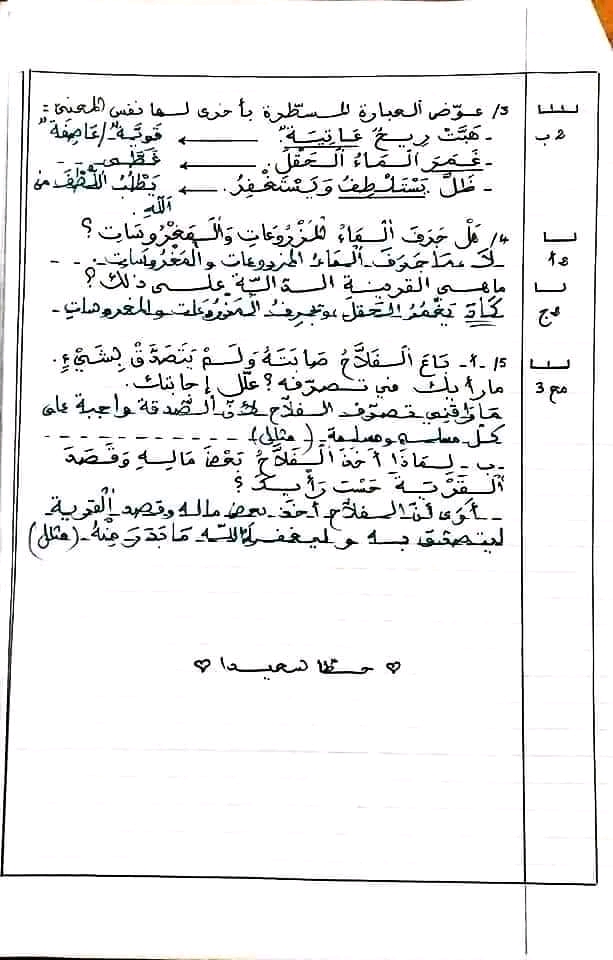 3/ عوّض العبارة المسطّرة بأخرى لها نفس المعنى:
2ب
- هَبَّتْ رِيحٌ عَاتِيَةٌ. ← قويّة"/عَاصِفَة"
- غَمَرَ المَاءُ الحَقْلَ. ← غَطَّى - -
- ظَلَّ يَسْتَلْطِفُ وَيَسْتَغْفِرُ. ← يَطْلُبُ اللُّطْفَ من
اللّه.
4/ هَلْ جَرَفَ المَاءُ المَزْرُوعَاتِ وَالمَغْرُوسَاتِ؟
لا، مَا جَرَفَ الماءُ المزروعات والمغروسات. - -
ما هي القرينة الدالّة على ذلك؟
كَادَ يَغْمُرُ الحقلَ، وَيجرفُ المَزْرُوعَات والمغروسات.
5/ أ- بَاعَ الفَلاَّحُ صَابَتَهُ وَلَمْ يَتَصَدَّقْ بِشَيْءٍ.
مع3
ما رأيك في تصرّفه؟ علّل إجابتك.
مَا وَافَقَنِي تصرّف الفلاّح لأنّ الصّدقة واجبة على
كلّ مسلم ومسلمة. (مثال) - - - - - - - -
ب- لِمَاذَا أَخَذَ الفَلاَّحُ بَعْضَ مَالِهِ وَقَصَدَ
القَرْيَةَ حَسْبَ رَأْيِكَ؟
- أرى أنّ الفلاّح أخذ بعض ماله وقصد القرية
ليتصدّق به وليغفر اللّه مَا بَدَرَ مِنْهُ. (مثال)
♡ حظّا سعيدا ♡